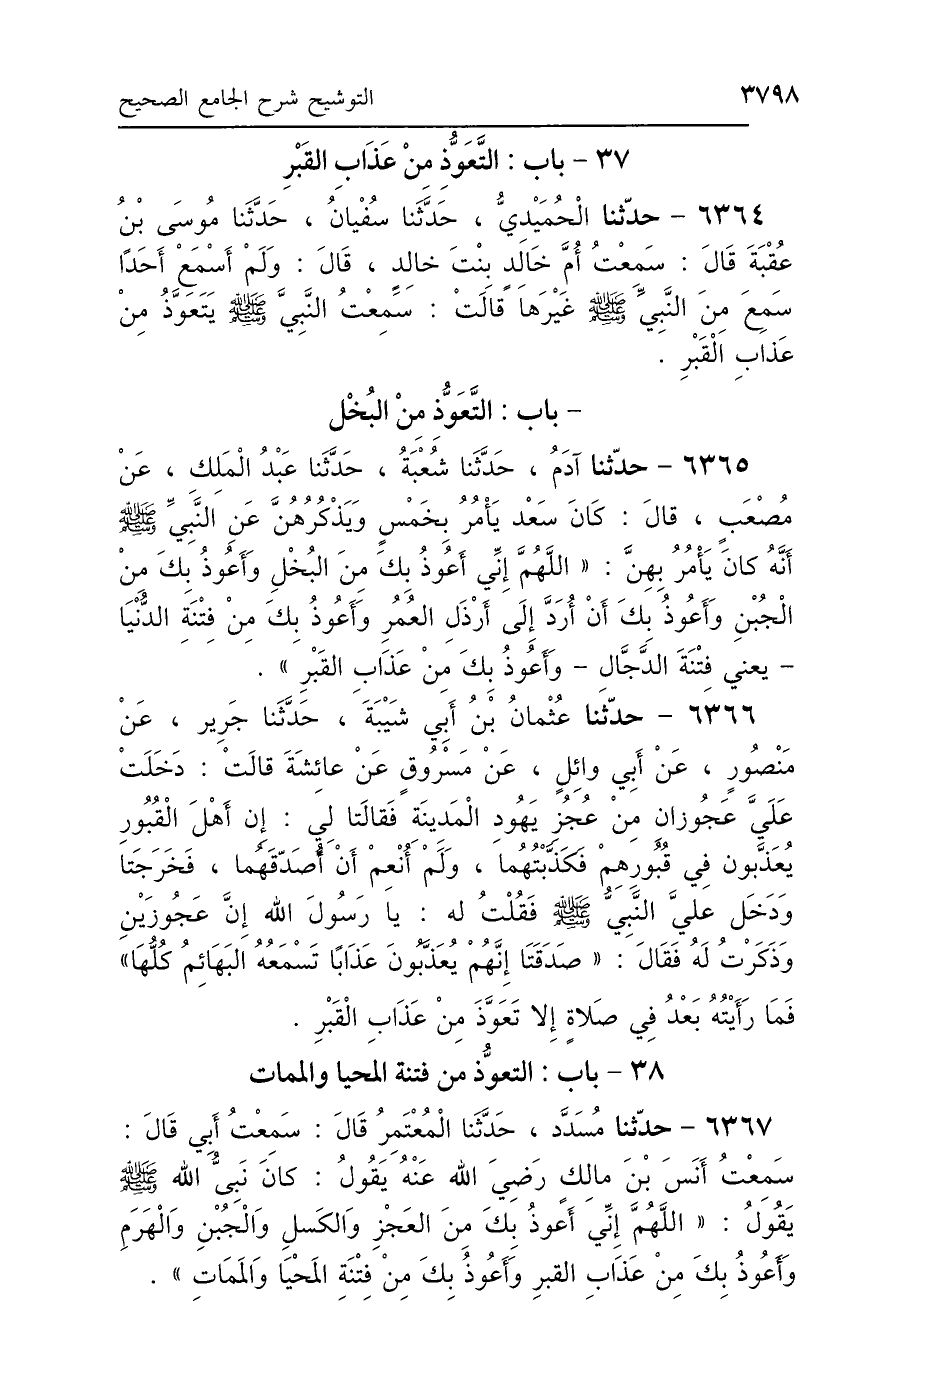 ٣٧٩٨ التوشيح شرح الجامع الصحيح
٣٧ - باب : التَّعَوُّذِ مِنْ عَذَابِ القَبْرِ
٦٣٦٤ - حدّثنا الْحُمَيْدِيُّ ، حَدَّثَنا سُفْيانُ ، حَدَّثَنا مُوسَى بْنُ
عُقْبَةَ قَالَ : سَمِعْتُ أُمَّ خَالِدٍ بِنْتَ خالِدٍ ، قَالَ : وَلَمْ أَسْمَعْ أَحَدًا
سَمِعَ مِنَ النَّبِيِّ ﷺ غَيْرَها قالَتْ : سَمِعْتُ النَّبِيَّ ﷺ يَتَعَوَّذُ مِنْ
عَذابِ الْقَبْرِ .
- باب : التَّعَوُّذِ مِنْ البُخْلِ
٦٣٦٥ - حدّثنا آدَمُ ، حَدَّثَنا شُعْبَةُ ، حَدَّثَنا عَبْدُ الْمَلِكِ ، عَنْ
مُصْعَبٍ ، قالَ : كَانَ سَعْد يَأْمُرُ بِخَمْسٍ وَيَذْكُرُهُنَّ عَنِ النَّبِيِّ ﷺ
أَنَّهُ كانَ يَأْمُرُ بِهِنَّ : « اللَّهُمَّ إِنِّي أَعُوذُ بِكَ مِنَ البُخْلِ وأَعُوذُ بِكَ مِنَ
الْجُبْنِ وأَعُوذُ بِكَ أَنْ أُرَدَّ إِلَى أَرْذَلِ العُمُرِ وأَعُوذُ بِكَ مِنْ فِتْنَةِ الدُّنْيَا
- يعني فِتْنَةَ الدَّجَّالِ - وأَعُوذُ بِكَ مِنْ عَذَابِ القَبْرِ » .
٦٣٦٦ - حدّثنا عُثْمانُ بْنُ أَبِي شَيْبَةَ ، حَدَّثَنا جَرِير ، عَنْ
مَنْصُورٍ ، عَنْ أَبِي وائِلٍ ، عَنْ مَسْرُوقٍ عَنْ عائِشَةَ قالَتْ : دَخَلَتْ
عَلَيَّ عَجُوزانِ مِنْ عُجُزِ يَهُودِ الْمَدِينَةِ فَقالَتا لِي : إِن أَهْلَ الْقُبُورِ
يُعَذَّبون فِي قُبُورِهِمْ فَكَذَّبْتُهُما ، وَلَمْ أُنْعِمْ أَنْ أُصَدِّقَهُما ، فَخَرَجَتا
وَدَخَل عليَّ النَّبِيُّ ﷺ فَقُلْتُ له : يا رَسُولَ الله إنَّ عَجُوزَيْنِ
وَذَكَرْتُ لَهُ فَقَالَ : « صَدَقَتَا إِنَّهُمْ يُعَذَّبُونَ عَذَابًا تَسْمَعُهُ البَهَائِمُ كُلُّهَا»
فَمَا رَأَيْتُهُ بَعْدُ فِي صَلاةٍ إلا تَعَوَّذَ مِنْ عَذَابِ الْقَبْرِ .
٣٨ - باب : التعوُّذ من فتنة المحيا والممات
٦٣٦٧ - حدّثنا مُسَدَّد ، حَدَّثَنا الْمُعْتَمِرُ قَالَ : سَمِعْتُ أَبِي قَالَ :
سَمِعْتُ أَنَسَ بْنَ مالِكٍ رَضِيَ الله عَنْهُ يَقُولُ : كانَ نَبِيُّ الله ﷺ
يَقُولُ : « اللَّهُمَّ إِنِّي أَعوذُ بِكَ مِنَ العَجْزِ وَالكَسلِ وَالْجُبْنِ وَالْهَرَمِ
وأَعُوذُ بِكَ مِنْ عَذَابِ القبرِ وأَعُوذُ بكَ مِنْ فِتْنَةِ المَحْيَا وَالمَمَاتِ » .